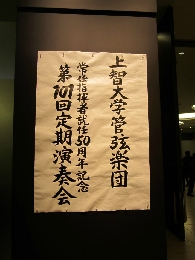 上智大学管弦楽団
常任指揮者就任50周年記念
第101回定期演奏会